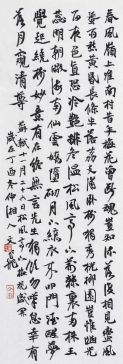 春風嶺上淮南村昔年梅花曾斷魂豈知流落復相見蠻風
蜑雨愁黃昏長條半落荔支浦臥樹獨秀桄榔園豈惟幽光
留夜色直恐冷艷排冬溫松風亭下荊棘裏兩株玉
蕊明朝暾海南仙雲嬌墮砌月下縞衣來扣門酒醒夢
覺起繞樹妙意有在終無言先生獨飲勿嘆息幸有
落月窺清尊 蘇軾十一月二十六日松風亭下梅花盛開
歲在丁酉冬仲湘人文